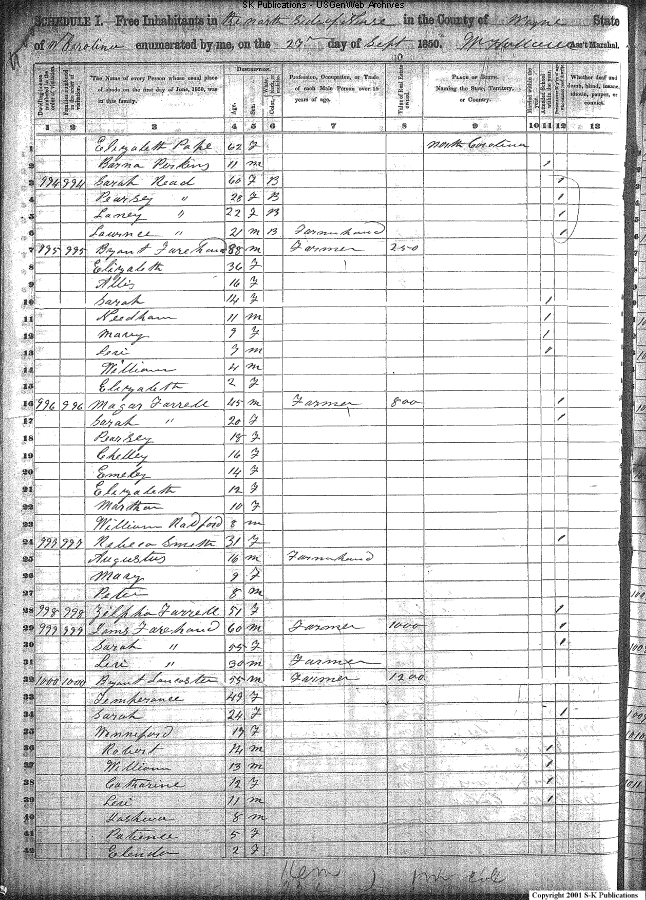 SK Publications - USGenWeb Archives
SCHEDULE I.—Free Inhabitants in the North Side of in the County of Wayne State
of N. Carolina enumerated by me, on the 27th day of Sept 1850. Ass't Marshal.
DESCRIPTION.
Dwelling-houses numbered in the order of visitation.
Families numbered in the order of visitation.
The Name of every Person whose usual place of abode on the first day of June, 1850, was in this family.
Age.
Sex.
Profession, Occupation, or Trade of each Male Person over 15 years of age.
Value of Real Estate owned.
PLACE OF BIRTH. Naming the State, Territory, or Country.
Married within the year.
Attended School within the year.
Whether deaf and dumb, blind, insane, idiotic, pauper, or convict.
1 2 3 4 5 6 7 8 9 10 11 12 13
1 Elizabeth Pape 62 F North Carolina
2 Barna Perkins 11 m 1
3 994 994 Sarah Read 60 F B 1
4 Pearsey " 28 F B 1
5 Laney " 22 F B 1
6 Lawrnce " 21 m B Farmhand 1
7 995 995 Bryant Farehand 38 m Farmer 250
8 Elizabeth 36 F
9 Allis 16 F
10 Sarah 14 F 1
11 Needham 11 m 1
12 Mary 9 F 1
13 Levi 7 m 1
14 William 4 m
15 Elizabeth 2 F
16 996 996 Magar Farrell 45 m Farmer 800 1
17 Sarah " 20 F 1
18 Pearsey 18 F
19 Chelley 16 F
20 Emeley 14 F
21 Elizabeth 12 F
22 Martha 10 F
23 William Radford 8 m
24 997 997 Rebeca Smith 31 F 1
25 Augustus 16 m Farmhand
26 Mary 9 F
27 Peter 8 m
28 998 998 Zilpha Farrell 51 F 1
29 999 999 Farehand 60 m Farmer 1000 1
30 Sarah " 55 F 1
31 Levi " 30 m Farmer
32 1000 1000 Bryant Lancaster 55 m Farmer 1200
33 Temperance 49 F
34 Sarah 24 F 1
35 Winniford 19 F
36 Robert 14 m 1
37 William 13 m 1
38 Catharine 12 F 1
39 Levi 11 m 1
40 8 m
41 Patience 5 F
42 Elenda 2 F
Copyright 2001 S-K Publications